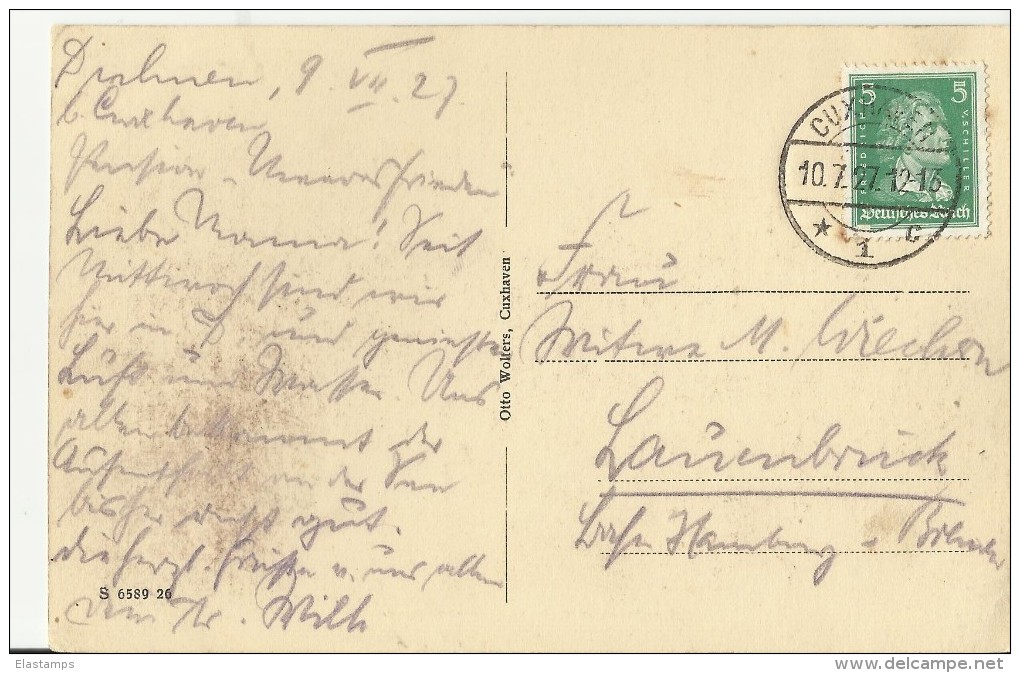 Duhnen, 9. VII. 27.
b. Cuxhaven
Pension „Meeresfrieden"
Liebe Mama! Seit
Mittwoch sind wir
hier in D. und genießen
Luft und Wasser. Uns
allen bekommt der
Aufenthalt an der See
bisher recht gut.
Die herzl. Grüße v. uns allen
Willi
S 6589 26
Otto Wolters, Cuxhaven
5 5
FRIEDRICH V. SCHILLER
Deutsches Reich
CUXHAVEN
10.7.27.12-1
* 1 c
Frau
Witwe M.
Lauenbrück
Hamburg - Bremen
Elastamps
www.delcampe.net